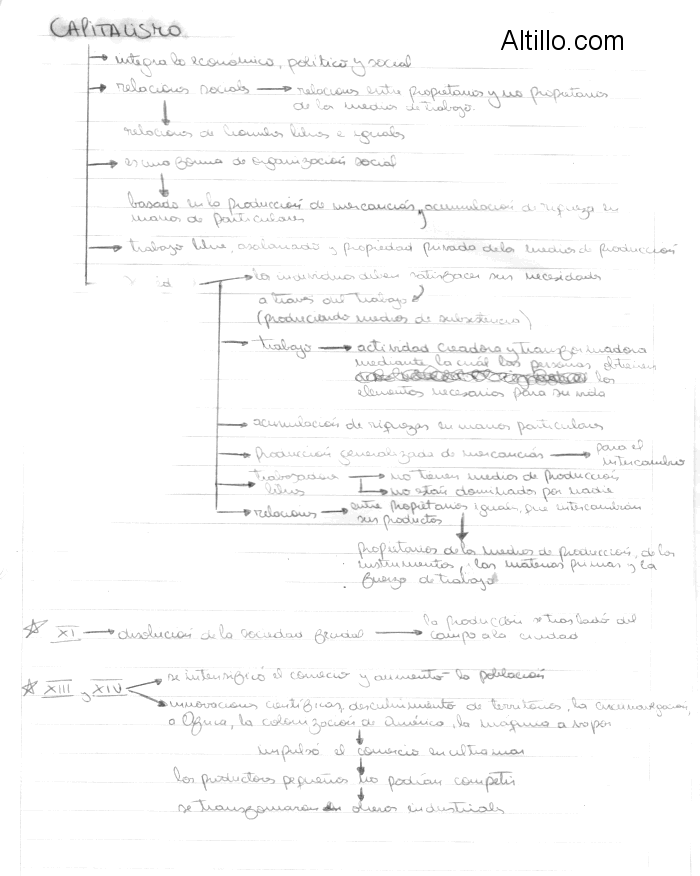 CAPITALISMO
Altillo.com
→ integra lo económico, político y social
→ relaciones sociales → relaciones entre propietarios y no propietarios
de los medios de trabajo.
relaciones de hombres libres e iguales
→ es una forma de organización social
basado en la producción de mercancías, acumulación de riqueza en
manos de particulares
→ trabajo libre, asalariado y propiedad privada de los medios de producción
id → los individuos deben satisfacer sus necesidades
a través del trabajo
(produciendo medios de subsistencia)
→ trabajo → actividad creadora y transformadora
mediante la cuál las personas obtienen
los
elementos necesarios para su vida
→ acumulación de riquezas en manos particulares
→ producción generalizada de mercancías → para el
intercambio
→ trabajadores → no tienen medios de producción
libres → no están dominados por nadie
→ relaciones → entre propietarios iguales, que intercambian
sus productos
propietarios de los medios de producción, de los
instrumentos, las materias primas y la
fuerza de trabajo
☆ XI → disolución de la sociedad feudal → la producción se trasladó del
campo a la ciudad
☆ XIII y XIV → se intensificó el comercio y aumentó la población
→ innovaciones científicas, descubrimiento de territorios, la circunnavegación,
a África, la colonización de América, la máquina a vapor
impulsó el comercio en ultramar
los productores pequeños no podían competir
se transformaron en obreros industriales